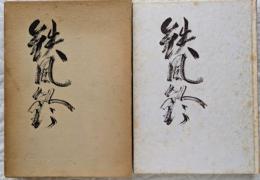 鉄風鈴
鉄風鈴